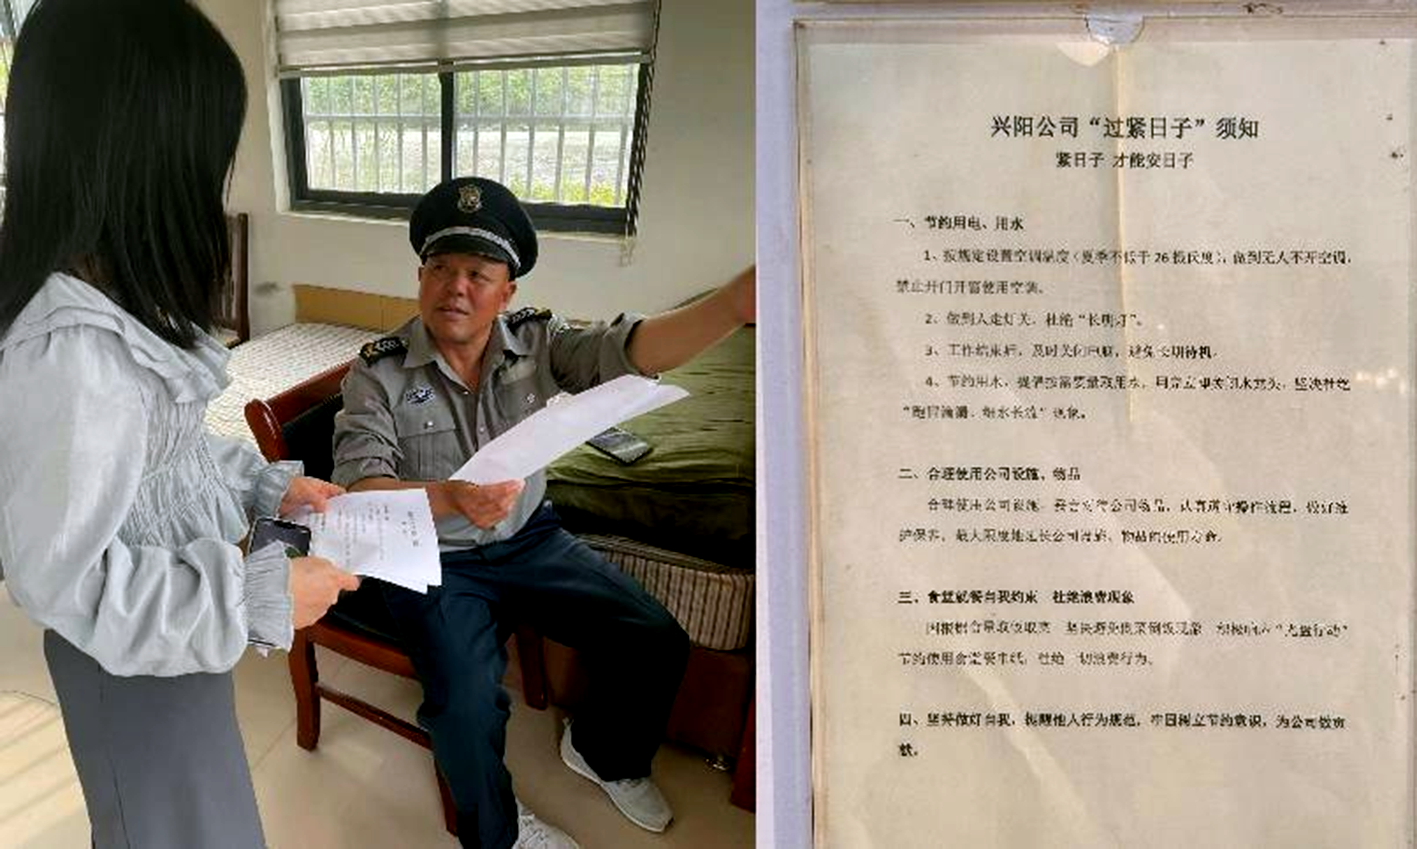 兴阳公司“过紧日子”须知
紧日子 才能安日子
一、节约用电、用水
1、按规定设置空调温度（夏季不低于26摄氏度），做到无人不开空调，
禁止开门开窗使用空调。
2、做到人走灯关，杜绝“长明灯”。
3、工作结束后，及时关闭电脑，避免长期待机。
4、节约用水，提倡按需要量取用水，用完立即关闭水龙头，坚决杜绝
“跑冒滴漏、细水长流”现象。
二、合理使用公司设施、物品
合理使用公司设施，妥善对待公司物品，认真遵守操作流程，做好维
护保养，最大限度地延长公司设施、物品的使用寿命。
三、食堂就餐自我约束 杜绝浪费现象
因根据食量取饭取菜 坚决避免剩菜倒饭现象 积极响应“光盘行动”
节约使用食堂餐巾纸，杜绝一切浪费行为。
四、坚持做好自我，提醒他人行为规范，牢固树立节约意识，为公司做贡
献。